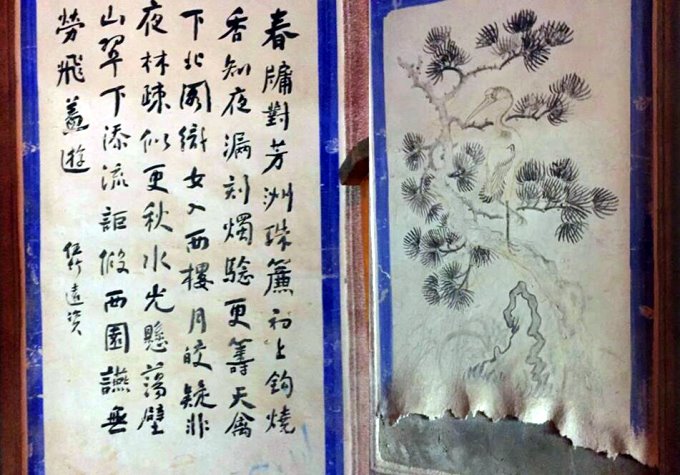 春牖對芳洲珠簾初上鉤燒
香知夜漏刻燭驗更籌天禽
下北閣織女入西樓月皎疑非
夜林疎似更秋水光懸蕩壁
山翠下添流詎假西園讌無
勞飛蓋遊